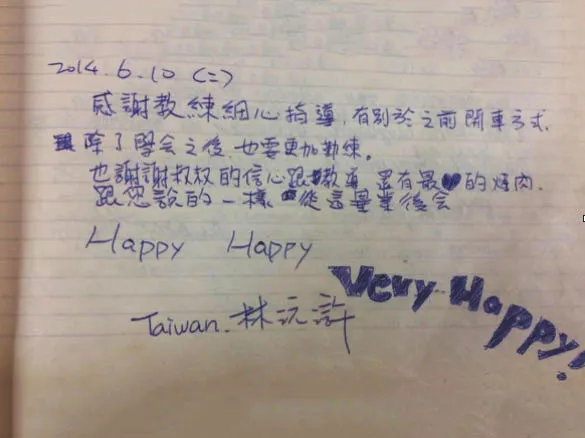 2014.6.10 (二)
感謝教練細心指導,有別於之前開車方式.
除了學会之後,也要更加勤練。
也謝謝叔叔的信心跟教導 還有最♥的烤肉.
跟您說的一樣 從這畢業後会
Happy Happy
Very Happy!
Taiwan.林沅許